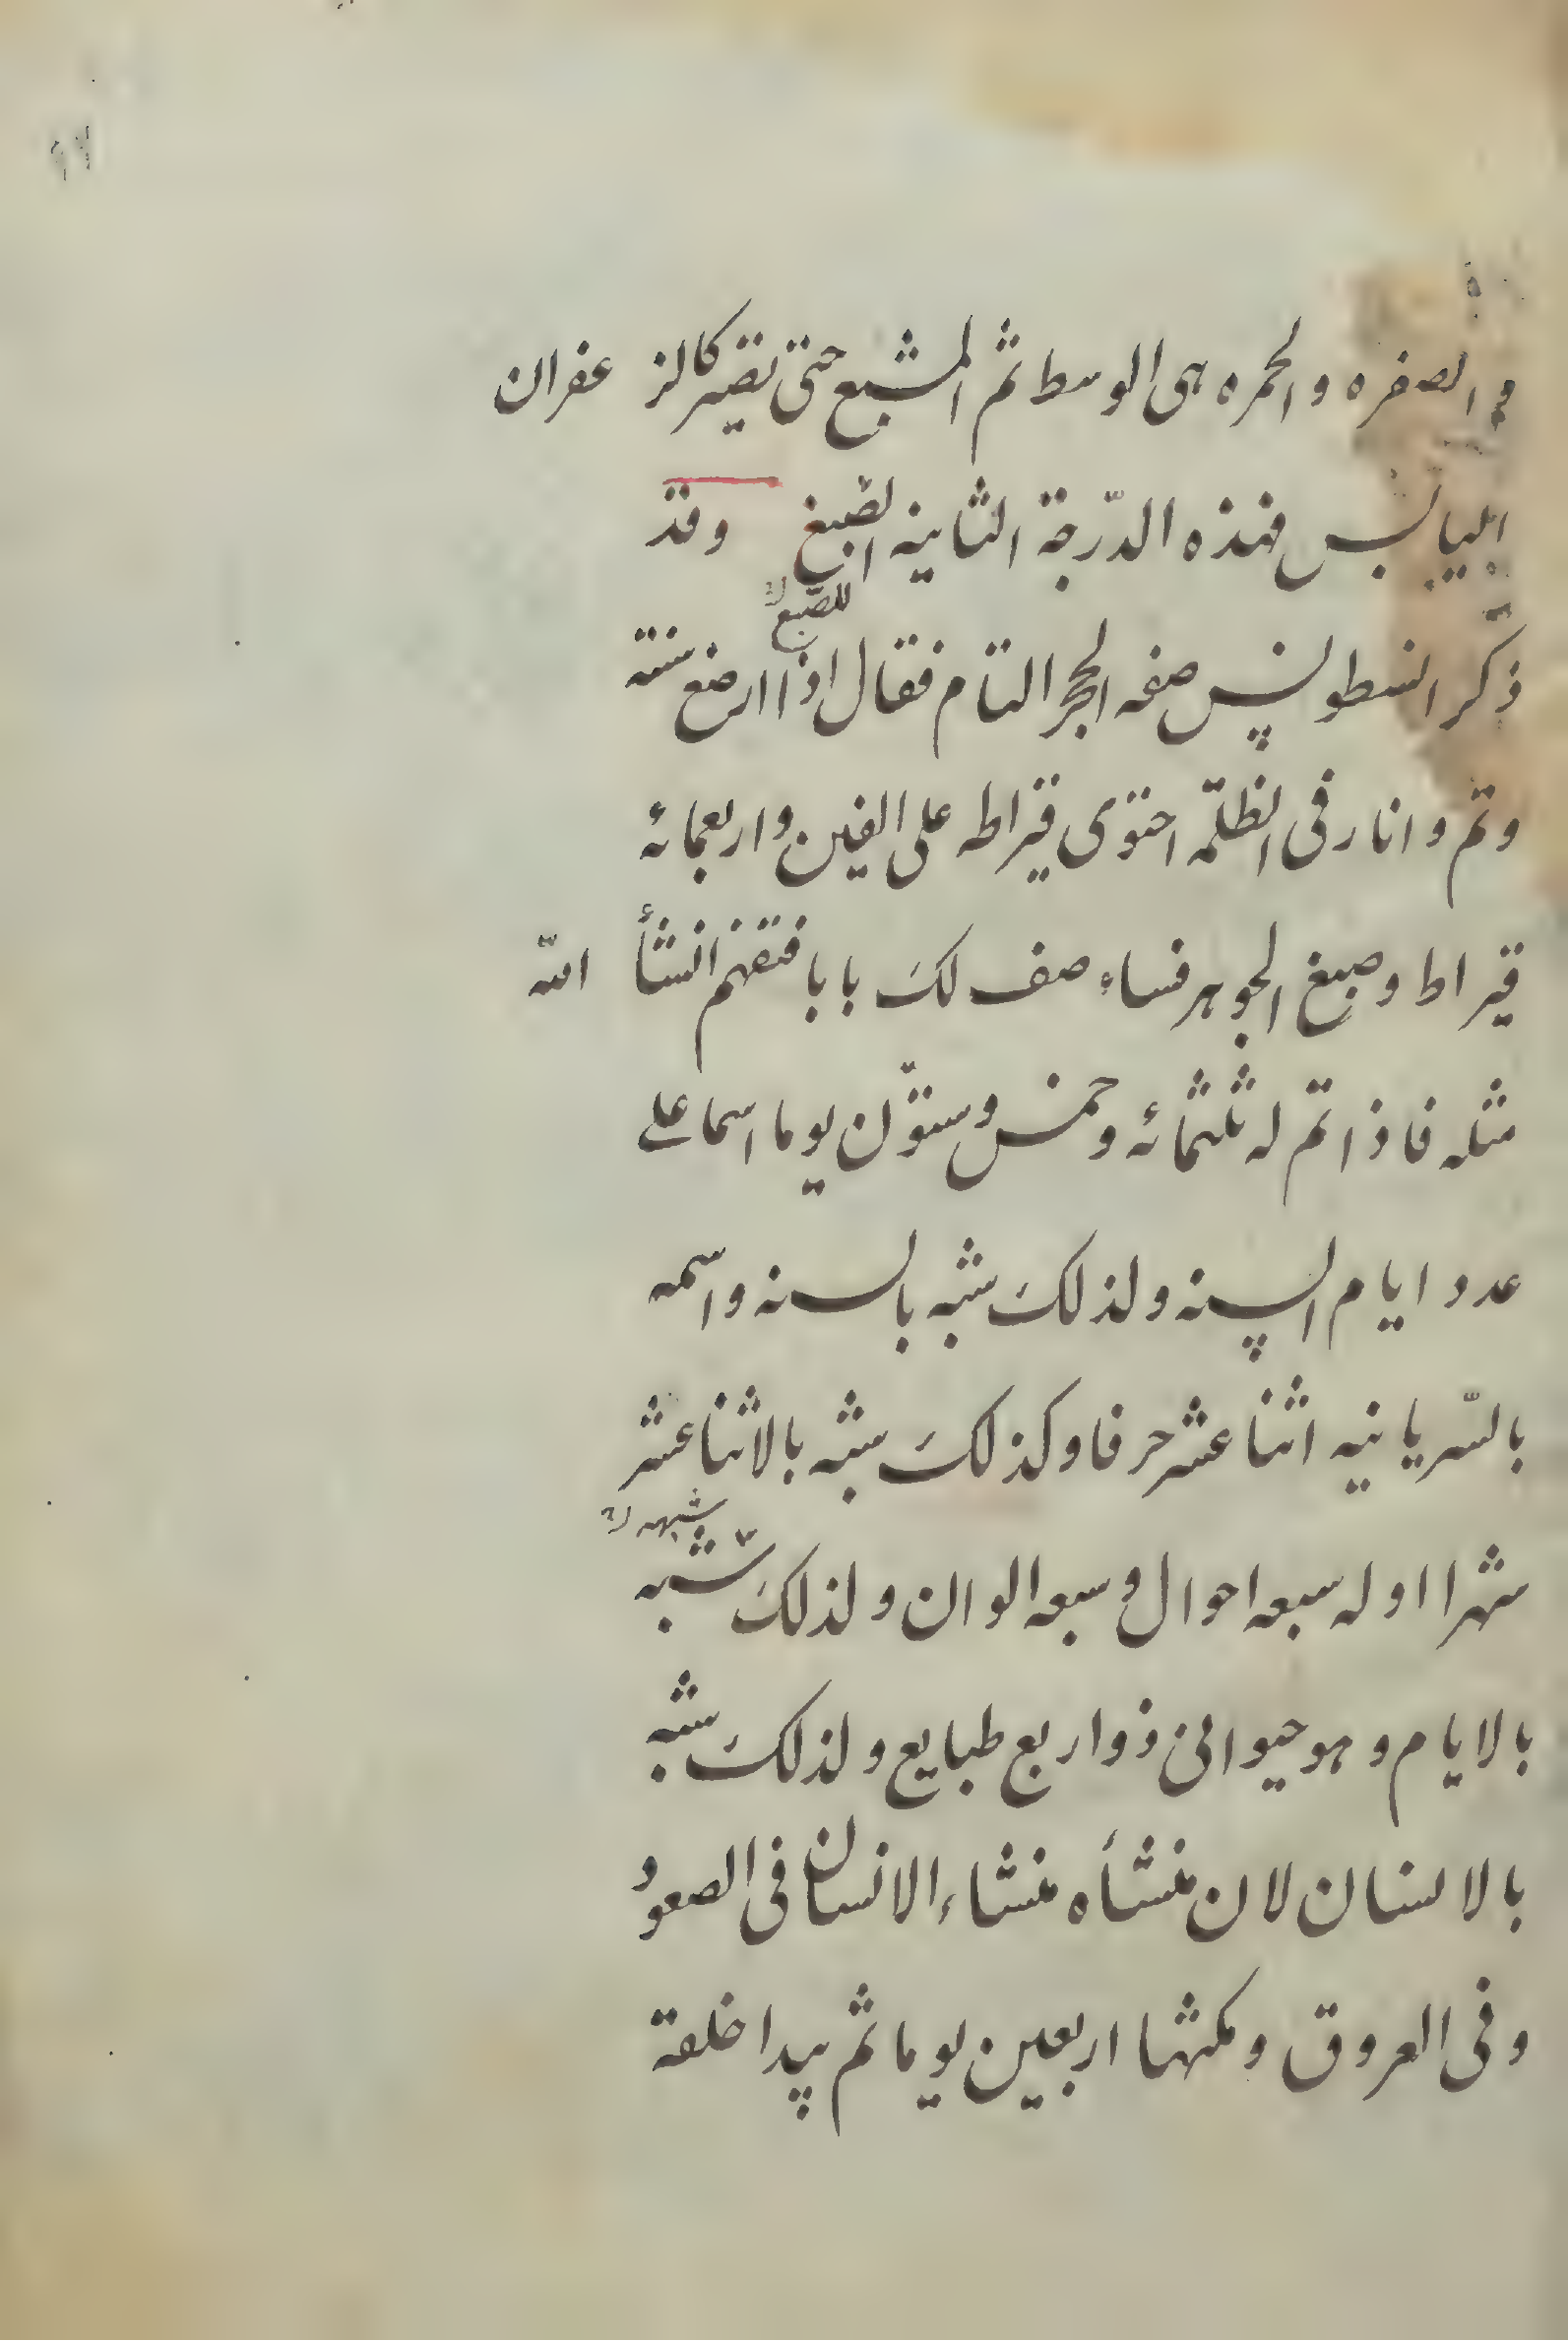 و الصفره والحمره هى الوسط ثم المشبع حتى تصير كالزعفران
اليابس فهذه الدّرجة الثانيه الصبغ وقد
للصّبغ
ذكر انسطولس صفه الحجر التام فقال اذا ارضع سنته
وتم وانار فى الظلمّه احتوى قيراطه على الفين واربعمائه
قيراط وصبغ الجوهر فساءصف لك بابا فتفهم انشأ الله
مثله فاذا تم له ثلثمائه وخمس وستوّن يوما اسما على
عدد ايام السنه ولذلك شبه بالسنه واسمه
بالسّريانيه اثنا عشر حرفا وكذلك شبه بالاثنا عشر
شبهه
شهرا اوله سبعه احوال و سبعه الوان ولذلك شبّه
بالايام وهو حيوانى ذو اربع طبايع ولذلك شبه
بالانسان لان منشأه منشاء الانسان فى الصعود
وفى العروق ومكثها اربعين يوما ثم يبدا خلقة